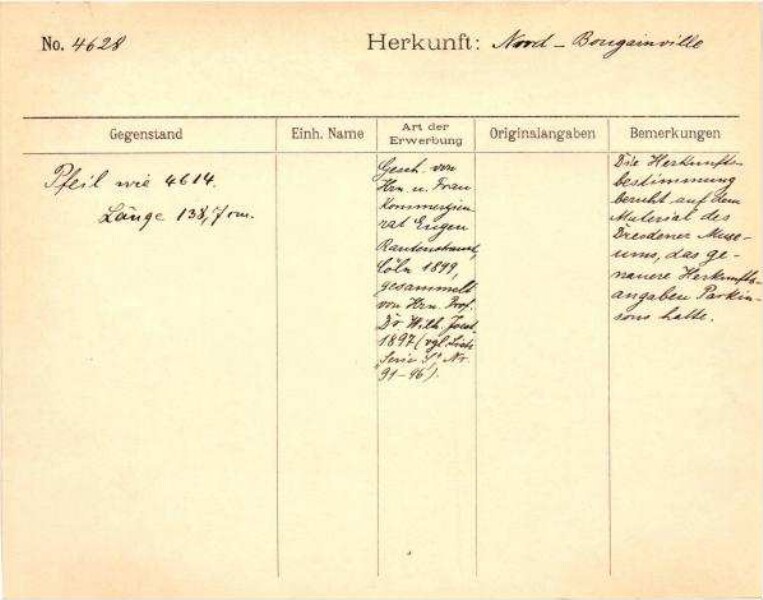 No. 4628
Herkunft: Nord - Bougainville
Gegenstand
Einh. Name
Art der
Erwerbung
Originalangaben
Bemerkungen
Pfeil wie 4614.
Länge 138,7 cm.
Gesch. von
Hrn. u. Frau
Kommerzien-
rat Eugen
Rautenstrauch,
Cöln 1899,
gesammelt
von Hrn. Prof.
Dr. Wilh. Joest
1897 (vgl. Liste
"Serie S", Nr.
91-96).
Die Herkunfts-
bestimmung
beruht auf dem
Material des
Dresdener Muse-
ums, das ge-
nauere Herkunfts-
angaben Parkin-
sons hatte.